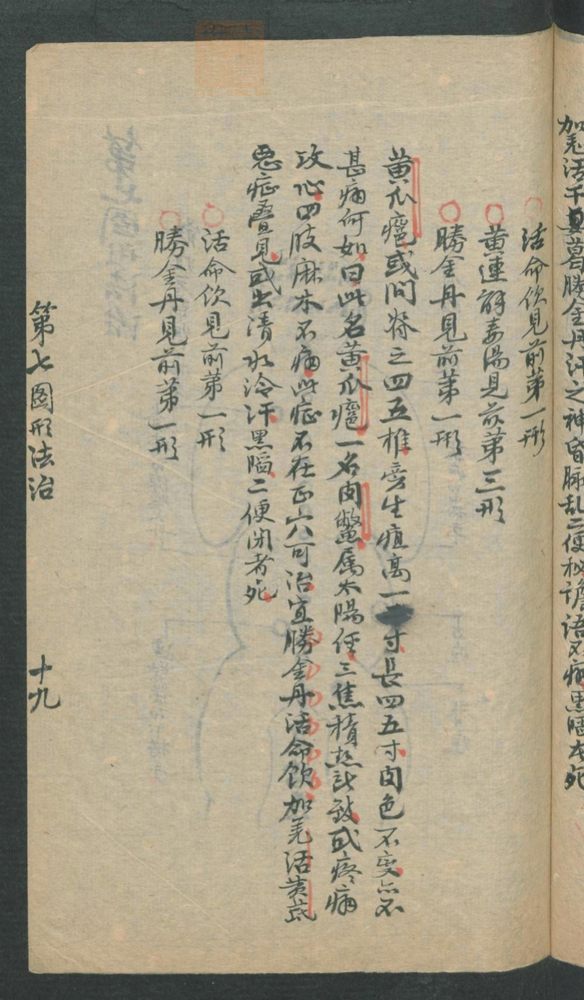 加羌活干葛勝金丹汗之神昏脉乱二便秘譫語不痛黒陷者死
活命飲見前第一形
黄連解毒湯見前第三形
勝金丹見前第一形
黄瓜癰或问脊之四五椎旁生疽高一寸長四五寸肉色不变亦不
甚痛何如曰此名黄瓜癰一名肉鱉属太陽径三焦積热所致或疼痛
攻心四肢麻木不痛此症不在正穴可治宜勝金丹活命飲加羌活黄茋
悪症疊見或出清水冷汗黒陷二便闭者死
活命飲見前第一形
勝金丹見前第一形
第七图形法治
十九